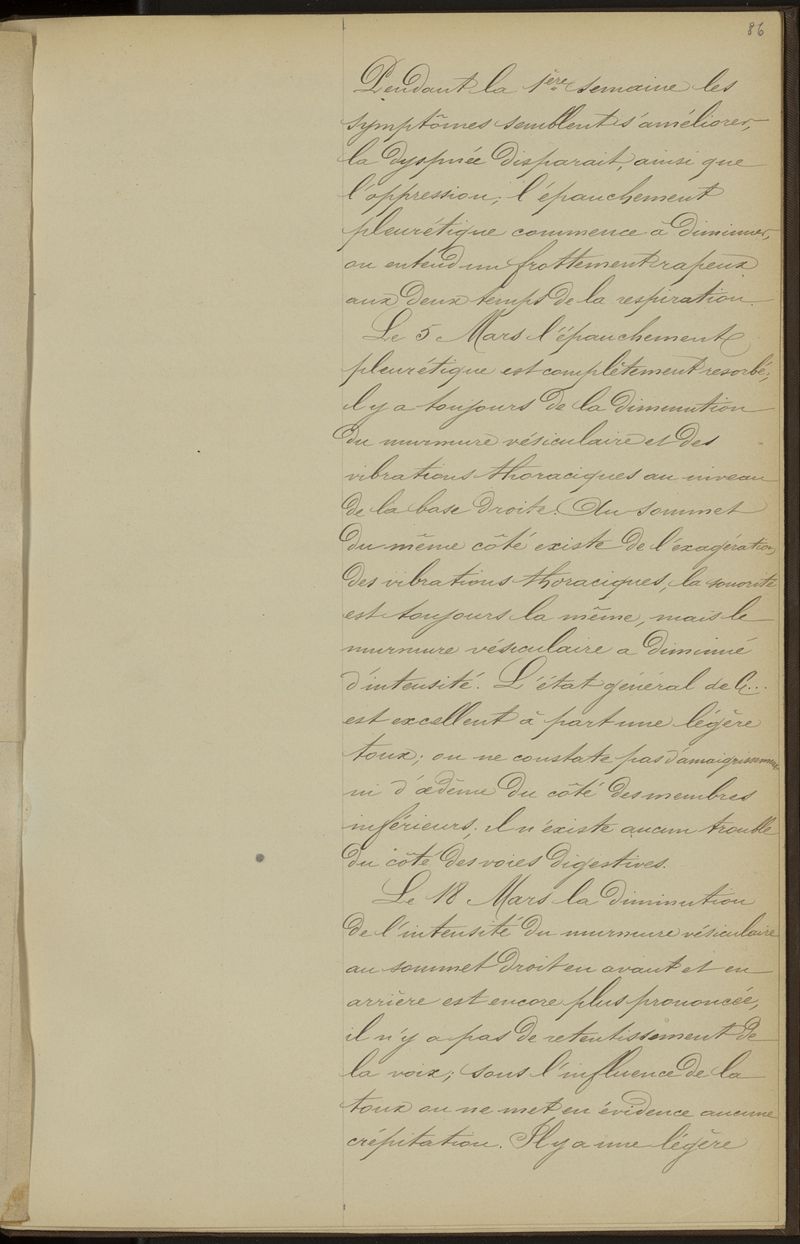 86
Pendant la 1ère semaine les
symptômes semblent s'améliorer,
la dyspnée disparait, ainsi que
l'oppression; l'épanchement
pleurétique commence à diminuer,
on entend un frottement rapeux
aux deux temps de la respiration.
Le 5 Mars l'épanchement
pleurétique est complètement resorbé;
il y a toujours de la diminution
du murmure vésiculaire et des
vibrations thoraciques au niveau
de la base droite. Au sommet
du même côté existe de l'exagération
des vibrations thoraciques, la sonorité
est toujours la même, mais le
murmure vésiculaire a diminué
d'intensité. L'état général de C...
est excellent à part une légère
toux; on ne constate pas d'amaigrissement
ni d'œdème du côté des membres
inférieurs; il n'existe aucun trouble
du côté des voies digestives.
Le 18 Mars la diminution
de l'intensité du murmure vésiculaire
au sommet droit en avant et en
arrière est encore plus prononcée,
il n'y a pas de retentissement de
la voix; sous l'influence de la
toux on ne met en évidence aucune
crépitation. Il y a une légère